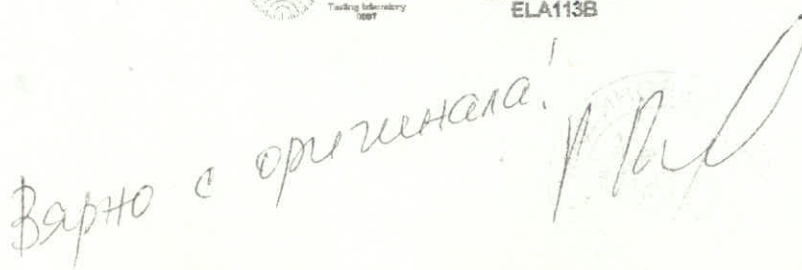 Testing laboratory
ELA113B
Вярно с оригинала!